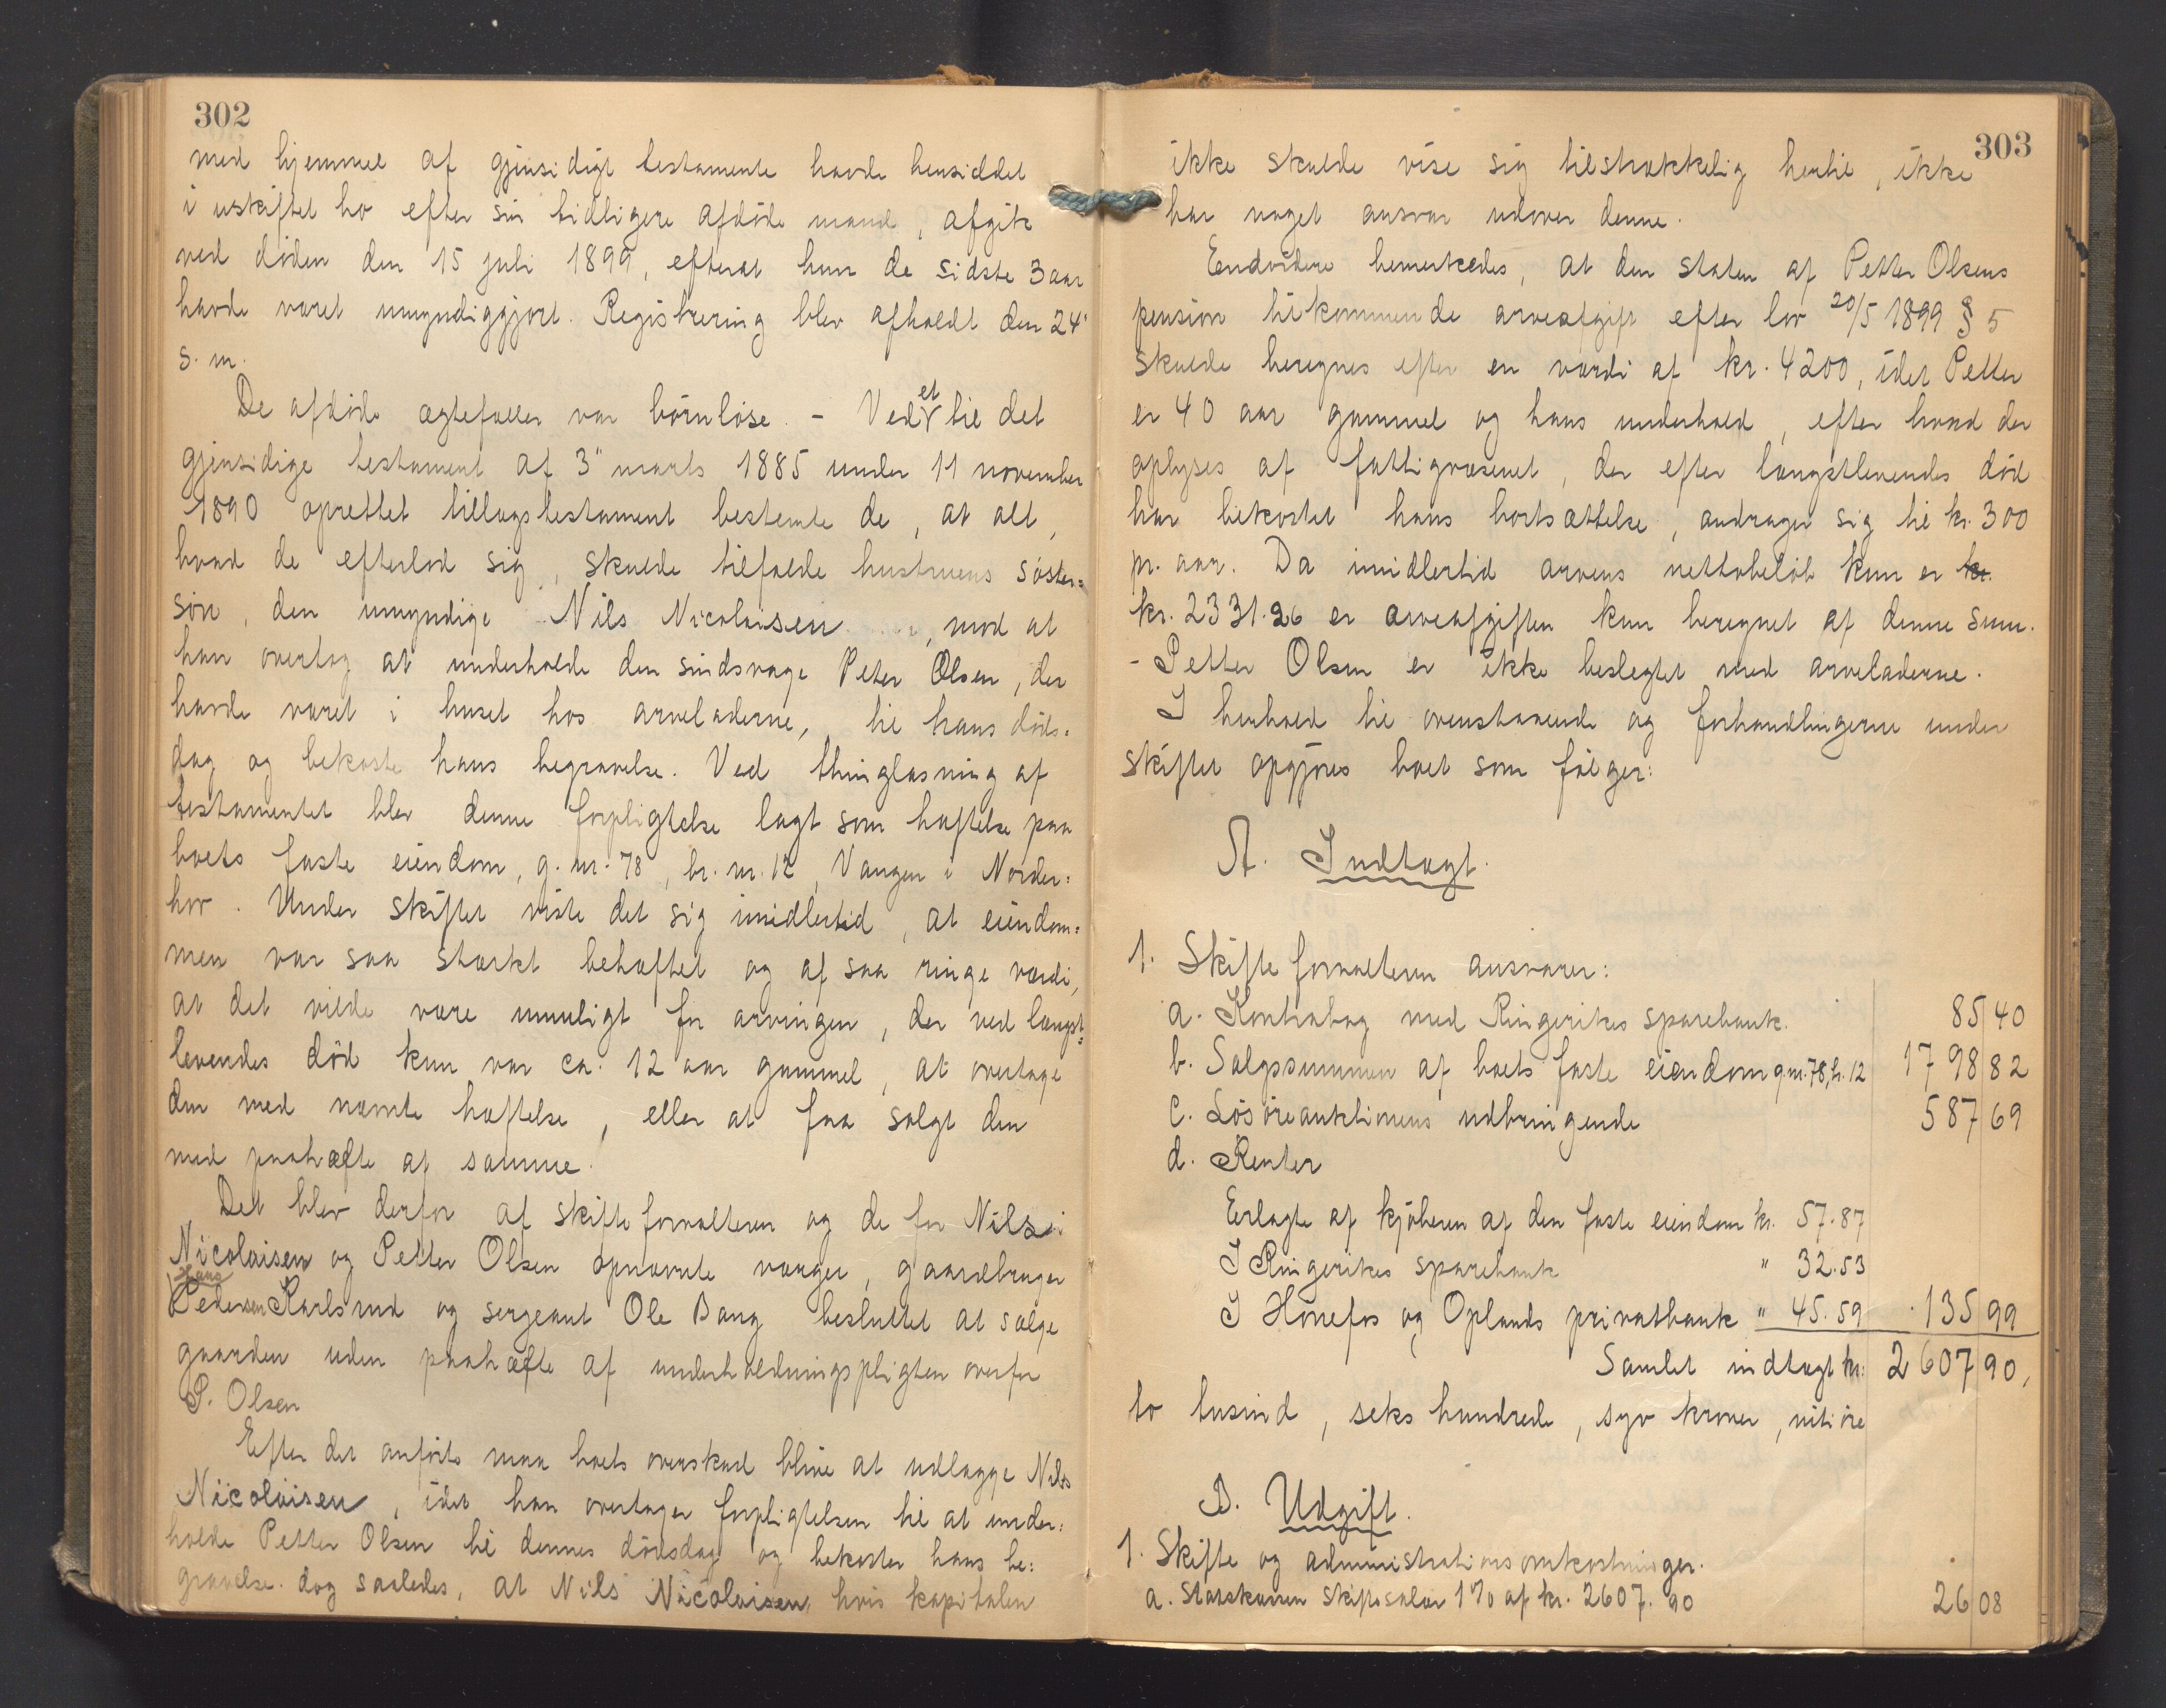 302
med hjemmel af gjensidigt testamente havde hensiddet
i uskiftet bo efter sin tidligere afdøde mand, afgik
ved døden den 15 juli 1899, efterat hun de sidste 3 aar
havde været umyndiggjort. Registrering blev afholdt den 24'
s. m.
De afdøde ægtefæller var børnløse. - Ved et til det
gjensidige testament af 3" marts 1885 under 11 november
1890 oprettet tillægstestament bestemte de, at alt,
hvad de efterlod sig, skulde tilfalde hustruens søster=
søn, den umyndige Nils Nicolaisen, mod at
han overtog at underholde den sindsvage Peter Olsen, der
havde været i huset hos arveladerne, til hans døds=
dag og bekoste hans begravelse. Ved thinglæsning af
testamentet blev denne forpligtelse lagt som hæftelse paa
boets faste eiendom, g. nr. 78, br. nr. 12, Vangen i Norder=
hov. Under skiftet viste det sig imidlertid, at eiendom=
men var saa stærkt behæftet og af saa ringe værdi,
at det vilde være umuligt for arvingen, der ved længst=
levendes død kun var ca. 12 aar gammel, at overtage
den med nævnte hæftelse, eller at faa solgt den
med paahæfte af samme.
Det blev derfor af skifteforvalteren og de for Nils
Nicolaisen og Petter Olsen opnævnte værger, gaardbruger
Hans
Pedersen Karlsrud og sergeant Ole Bang besluttet at sælge
gaarden uden paahæfte af underholdningspligten overfor
P. Olsen
Efter det anførte maa boets overskud blive at udlægge Nils
Nicolaisen, idet han overtager forpligtelsen til at under=
holde Petter Olsen til dennes dødsdag og bekoster hans be=
gravelse. dog saaledes, at Nils Nicolaisen, hvis kapitalen
303
ikke skulde vise sig tilstrækkelig hertil, ikke
har noget ansvar udover denne.
Endvidere bemerkedes, at den staten af Petter Olsens
pension tilkommende arveafgift efter lov 20/5 1899 § 5
skulde beregnes efter en værdi af kr. 4200, idet Petter
er 40 aar gammel og hans underhold, efter hvad der
oplyses af fattigvæsenet, der efter længstlevendes død
har bekostet hans bortsættelse, andrager sig til kr. 300
pr. aar. Da imidlertid arvens nettobeløb kun er kr.
kr. 2331.26 er arveafgiften kun beregnet af denne sum.
- Petter Olsen er ikke beslegtet med arveladerne.
I henhold til ovenstaaende og forhandlingerne under
skiftet opgjøres boet som følger:
A. Indtægt.
1. Skifteforvalteren ansvarer:
a. Kontrabog med Ringerikes sparebank. 85 40
b. Salgssummen af boets faste eiendom g.nr. 78, br. 12 1798 82
c. Løsøreauktionens udbringende 587 69
d. Renter
Erlagte af kjøberen af den faste eiendom kr. 57.87
I Ringerikes sparebank " 32.53
I Hønefos og Oplands privatbank " 45.59 135 99
Samlet indtægt kr. 2607 90,
to tusind, seks hundrede, syv kroner, niti øre
B. Udgift.
1. Skifte og administrationsomkostninger.
a. Statskassen skiftesalær 1% af kr. 2607.90 26 08